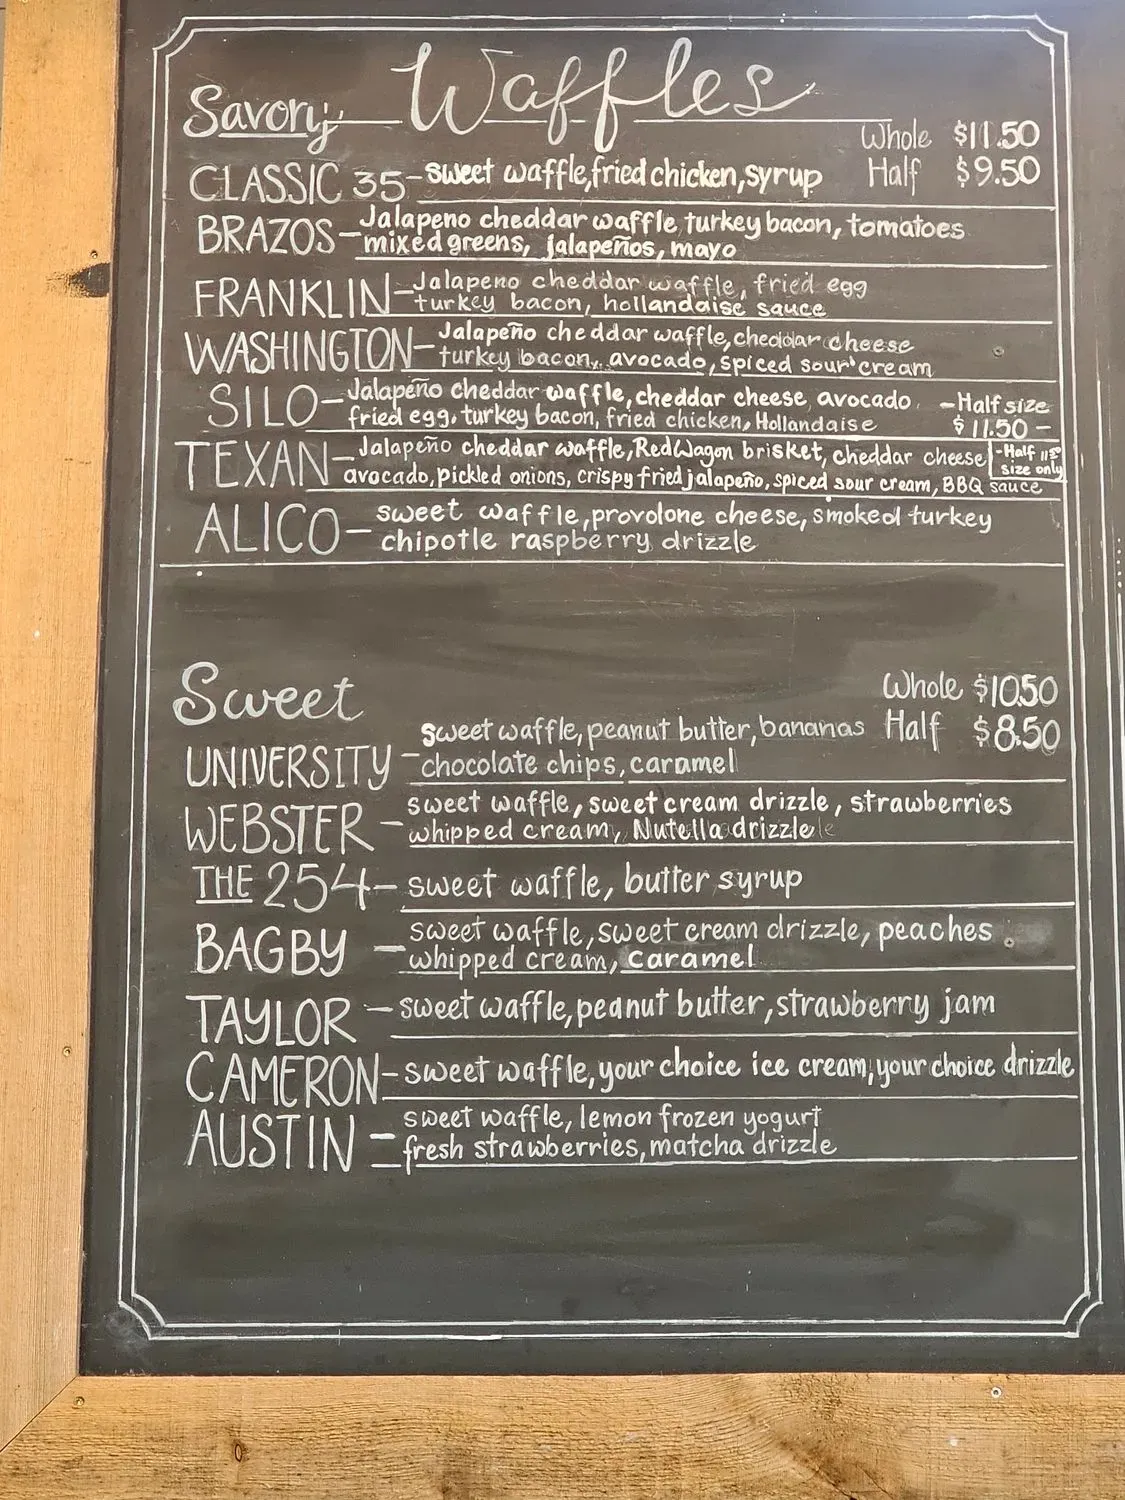 Waffles
Savory
Whole $11.50
Half $9.50
CLASSIC 35 - sweet waffle, fried chicken, syrup
BRAZOS - Jalapeno cheddar waffle turkey bacon, tomatoes
mixed greens, jalapeños, mayo
FRANKLIN - Jalapeno cheddar waffle, fried egg
turkey bacon, hollandaise sauce
WASHINGTON - Jalapeño cheddar waffle, cheddar cheese
turkey bacon, avocado, spiced sour cream
SILO - Jalapeño cheddar waffle, cheddar cheese avocado
fried egg, turkey bacon, fried chicken, Hollandaise
- Half size
$11.50 -
TEXAN - Jalapeño cheddar waffle, Red Wagon brisket, cheddar cheese
avocado, pickled onions, crispy fried jalapeño, spiced sour cream, BBQ sauce
- Half 11.50
size only
ALICO - sweet waffle, provolone cheese, smoked turkey
chipotle raspberry drizzle
Sweet
Whole $10.50
Half $8.50
UNIVERSITY - sweet waffle, peanut butter, bananas
chocolate chips, caramel
WEBSTER - sweet waffle, sweet cream drizzle, strawberries
whipped cream, Nutella drizzle
THE 254 - sweet waffle, butter syrup
BAGBY - sweet waffle, sweet cream drizzle, peaches
whipped cream, caramel
TAYLOR - sweet waffle, peanut butter, strawberry jam
CAMERON - sweet waffle, your choice ice cream, your choice drizzle
AUSTIN - sweet waffle, lemon frozen yogurt
fresh strawberries, matcha drizzle